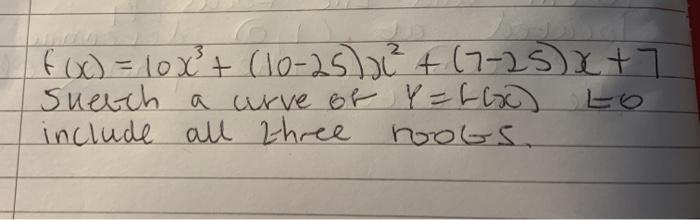 f(x) = 10x³ + (10-25)x² + (7-25)x + 7
Sketch a curve of Y = f(x) to
include all three roots.